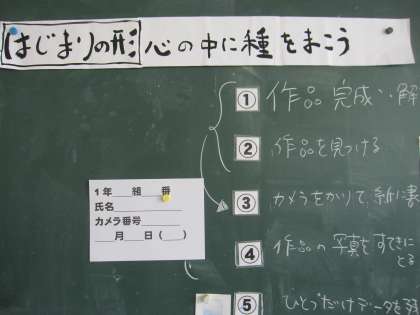 はじまりの形 心の中に種をまこう
① 作品完成・解
② 作品を見つける
③ カメラをかりて、
④ 作品の写真をすてきに
とる
⑤ ひとつだけデータを
1年___組___番
氏名
カメラ番号
___月___日(___)